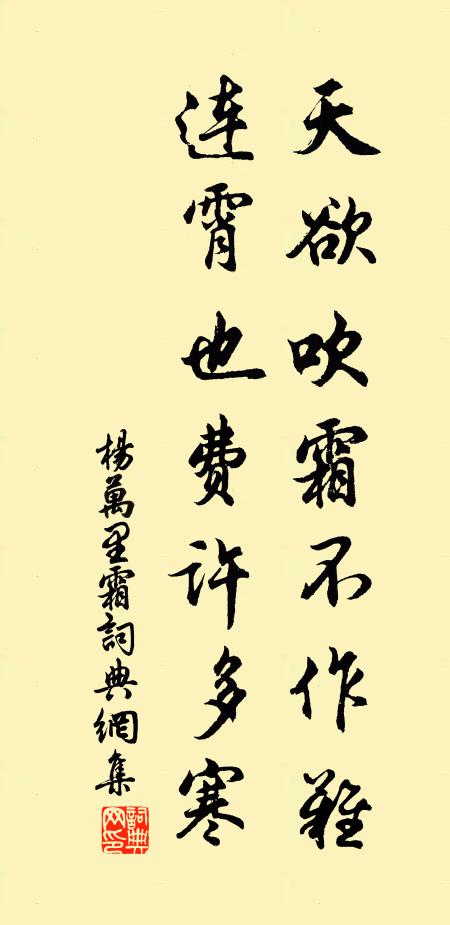 天欲吹霜不作難
連霄也費許多寒
楊萬里霜詞典網集
詞典网印